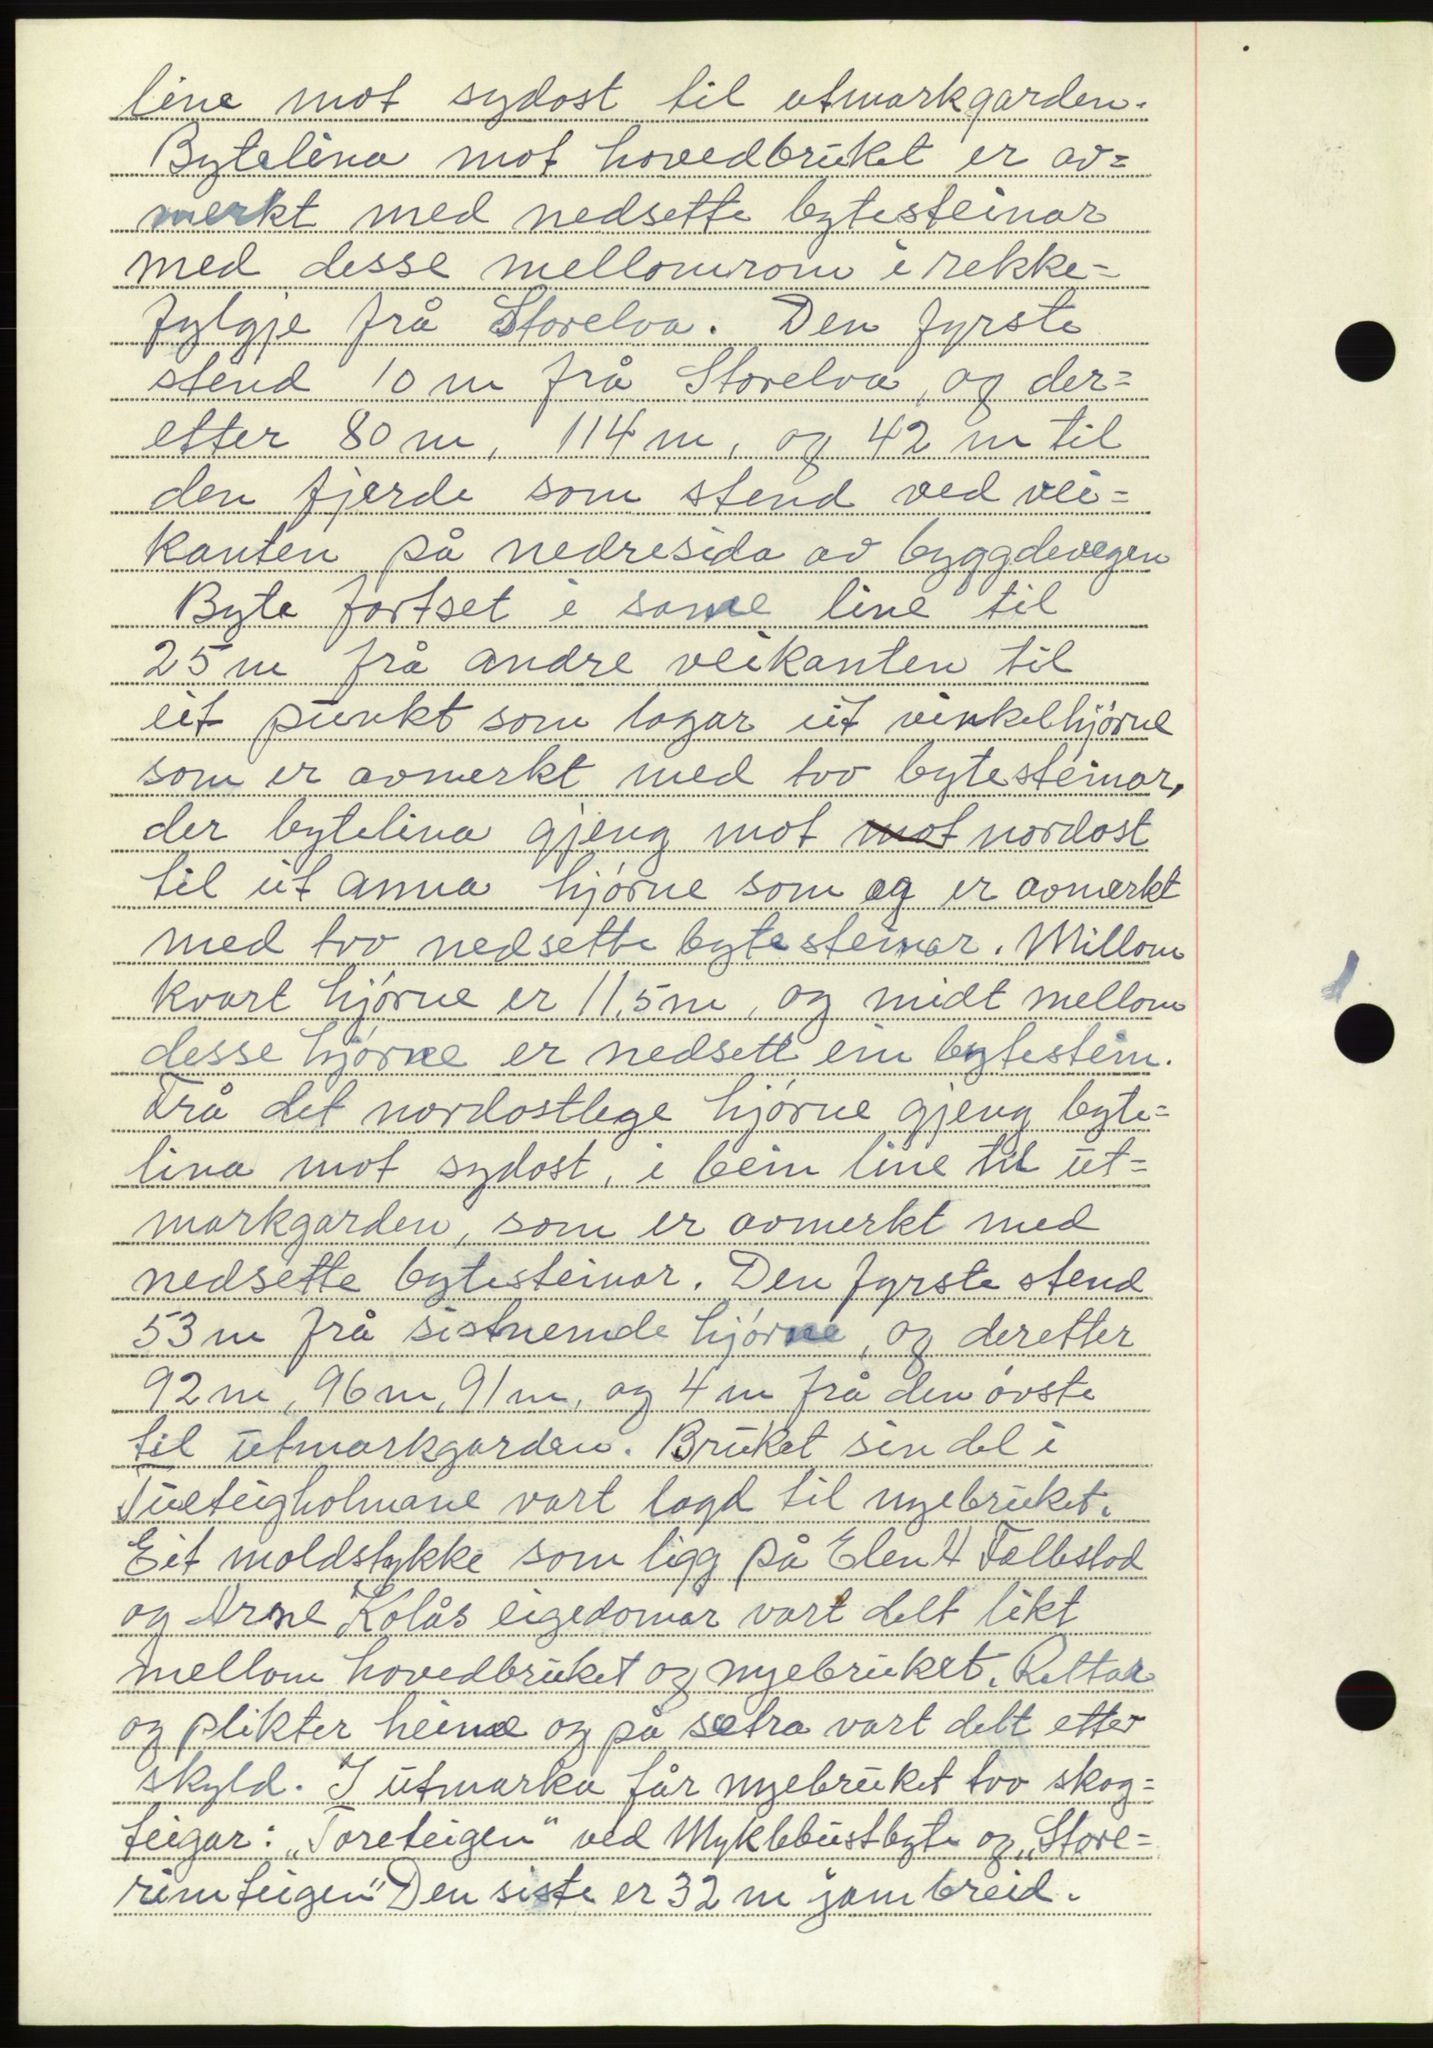 line mot sydost til utmarkgarden.
Bytelina mot hovedbruket er av=
merkt med nedsette bytesteinar
med desse mellomrom i rekke=
fylgje frå Storelva. Den fyrste
stend 10 m frå Storelva, og der=
etter 80 m, 114 m, og 42 m til
den fjerde som stend ved vei=
kanten på nedresida av byggdevegen
Byte fortset i same line til
25 m frå andre veikanten til
eit punkt som lagar eit vinkelhjørne
som er avmerkt med tvo bytesteinar,
der bytelina gjeng mot mot nordost
til eit anna hjørne som og er avmerkt
med tvo nedsette bytesteinar. Millom
kvart hjørne er 11,5 m, og midt mellom
desse hjørne er nedsett ein bytestein.
Frå det nordostlege hjørne gjeng byte=
lina mot sydost, i bein line til ut=
markgarden, som er avmerkt med
nedsette bytesteinar. Den fyrste stend
53 m frå sistnemde hjørne, og deretter
92 m, 96 m, 91 m, og 4 m frå den øvste
til utmarkgarden. Bruket sin del i
Tueteigholmane vart lagd til nyebruket.
Eit moldstykke som ligg på Elen H Falbstod
og Arne Kolås eigedomar vart delt likt
mellom hovedbruket og nyebruket. Rettar
og plikter heime og på setra vart delt etter
skyld. I utmarka får nyebruket tvo skog=
teigar: „Toreteigen" ved Myklebustbyte og „Store=
rimteigen" Den siste er 32 m jambreid.